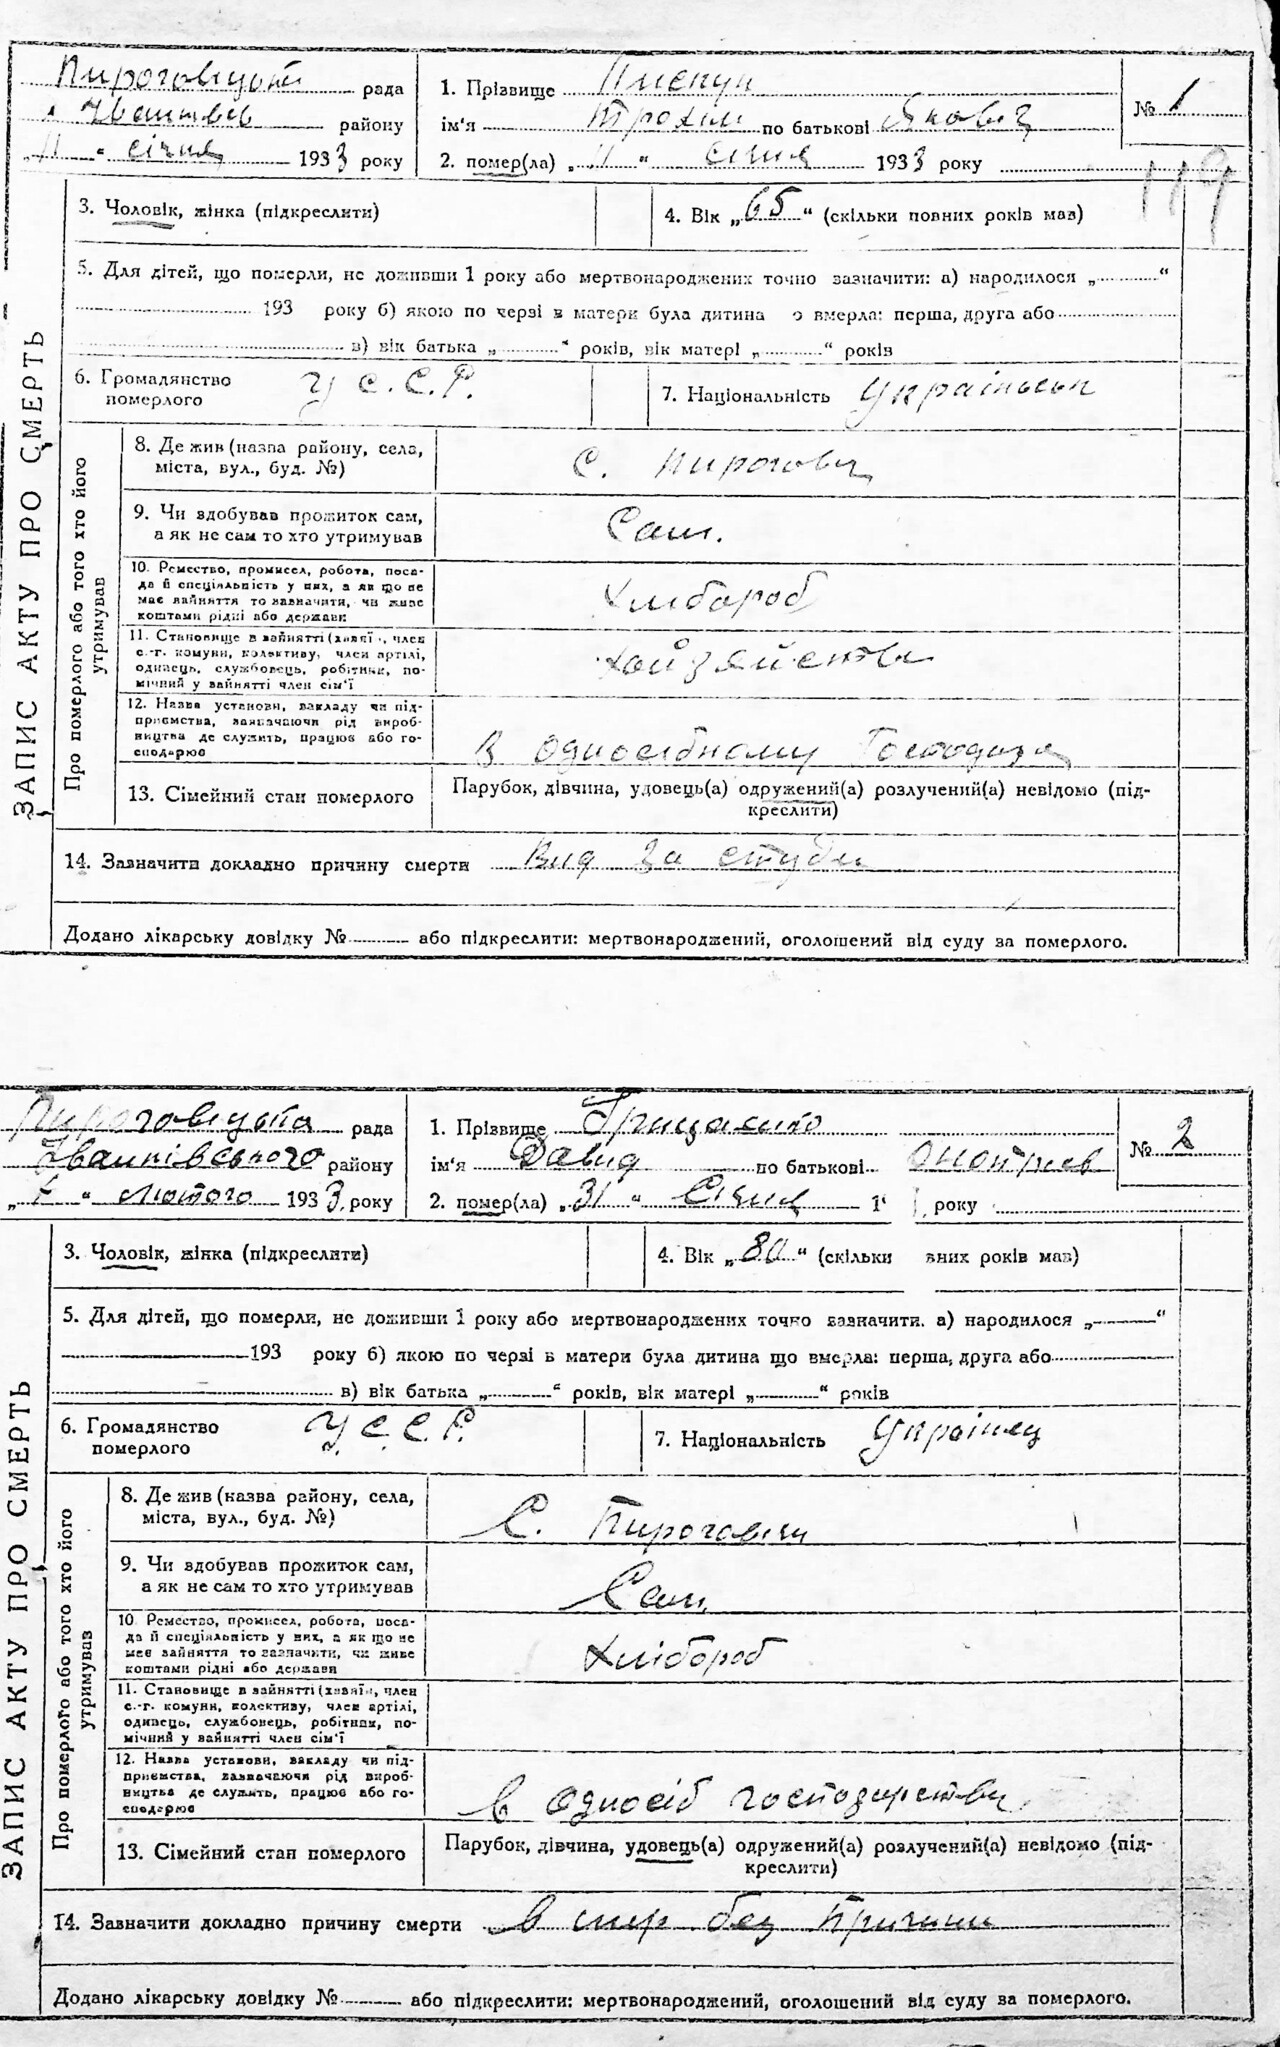 Пироговицька рада
Іванків району
„11“ січня 1933 року
1. Прізвище
ім'я Трохим по батькові Якович
2. помер(ла) „11“ січня 1933 року
№ 1
119
3. Чоловік, жінка (підкреслити)
4. Вік „65“ (скільки повних років мав)
5. Для дітей, що померли, не доживши 1 року або мертвонароджених точно зазначити: а) народилося „ “
193 року б) якою по черзі в матери була дитина о вмерла: перша, друга або
в) вік батька „ “ років, вік матері „ “ років
6. Громадянство
померлого
У С. С. Р.
7. Національність
ЗАПИС АКТУ ПРО СМЕРТЬ
Про померлого або того хто його
утримував
8. Де жив (назва району, села,
міста, вул., буд. №)
С. Пирогович
9. Чи здобував прожиток сам,
а як не сам то хто утримував
Сам.
10. Ремество, промисел, робота, поса-
да й спеціяльність у них, а як що не
має зайняття то зазначити, чи живе
коштами рідні або держави
Хлибороб
11. Становище в зайнятті (хазяї, член
с.-г. комуни, колективу, член артілі,
одинець, службовець, робітник, по-
мічний у зайнятті член сім'ї
12. Назва установи, закладу чи під-
приємства, зазначаючи рід вироб-
ництва де служить, працює або го-
сподарює
В одноосібному
13. Сімейний стан померлого
Парубок, дівчина, удовець(а) одружений(а) розлучений(а) невідомо (під-
креслити)
14. Зазначити докладно причину смерти Вид за студи
Додано лікарську довідку № або підкреслити: мертвонароджений, оголошений від суду за померлого.
Пироговицька рада
Іванківського району
„ “ лютого 1933 року
1. Прізвище Грицаенко
ім'я Давид по батькові
2. помер(ла) „31“ Січня 1 року
№ 2
3. Чоловік, жінка (підкреслити)
4. Вік „80“ (скільки вних років мав)
5. Для дітей, що померли, не доживши 1 року або мертвонароджених точно зазначити. а) народилося „ “
193 року б) якою по черзі в матери була дитина що вмерла: перша, друга або
в) вік батька „ “ років, вік матері „ “ років
6. Громадянство
померлого
У. С. С. Р.
7. Національність Українец
ЗАПИС АКТУ ПРО СМЕРТЬ
Про померлого або того хто його
утримував
8. Де жив (назва району, села,
міста, вул., буд. №)
С. Пироговичи
9. Чи здобував прожиток сам,
а як не сам то хто утримував
Сам.
10. Ремество, промисел, робота, поса-
да й спеціяльність у них, а як що не
має зайняття то зазначити, чи живе
коштами рідні або держави
Хлібороб
11. Становище в зайнятті (хазяїн, член
с.-г. комуни, колективу, член артілі,
одинець, службовець, робітник, по-
мічний у зайнятті член сім'ї
12. Назва установи, закладу чи під-
приємства, зазначаючи рід вироб-
ництва де служить, працює або го-
сподарює
в односіб господарстви
13. Сімейний стан померлого
Парубок, дівчина, удовець(а) одружений(а) розлучений(а) невідомо (під-
креслити)
14. Зазначити докладно причину смерти в мир без Причини
Додано лікарську довідку № або підкреслити: мертвонароджений, оголошений від суду за померлого.